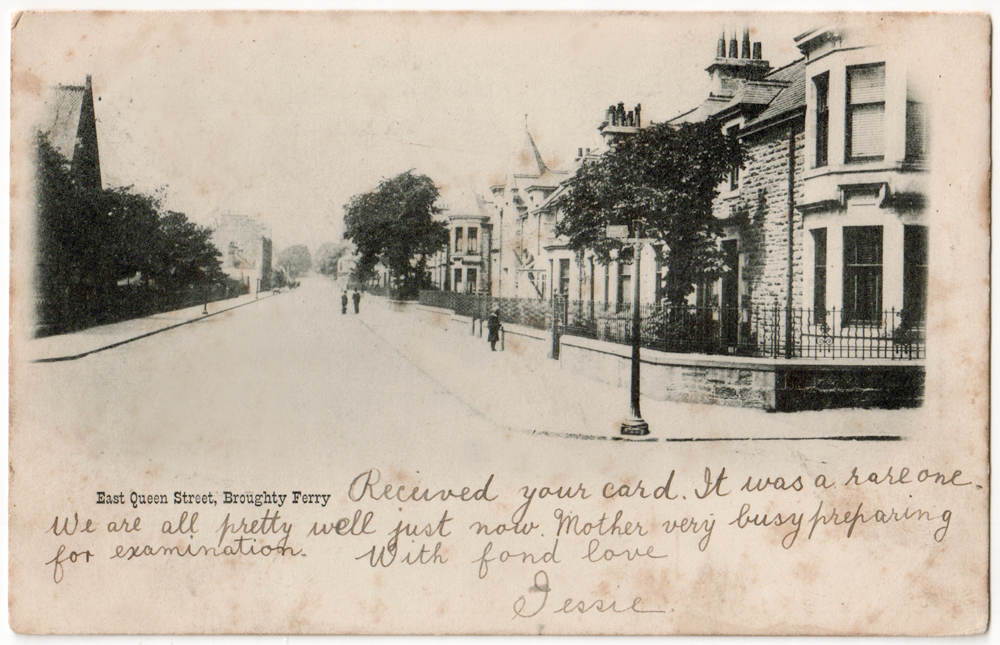 East Queen Street, Broughty Ferry
Received your card. It was a rare one.
We are all pretty well just now. Mother very busy preparing
for examination. With fond love
Jessie.